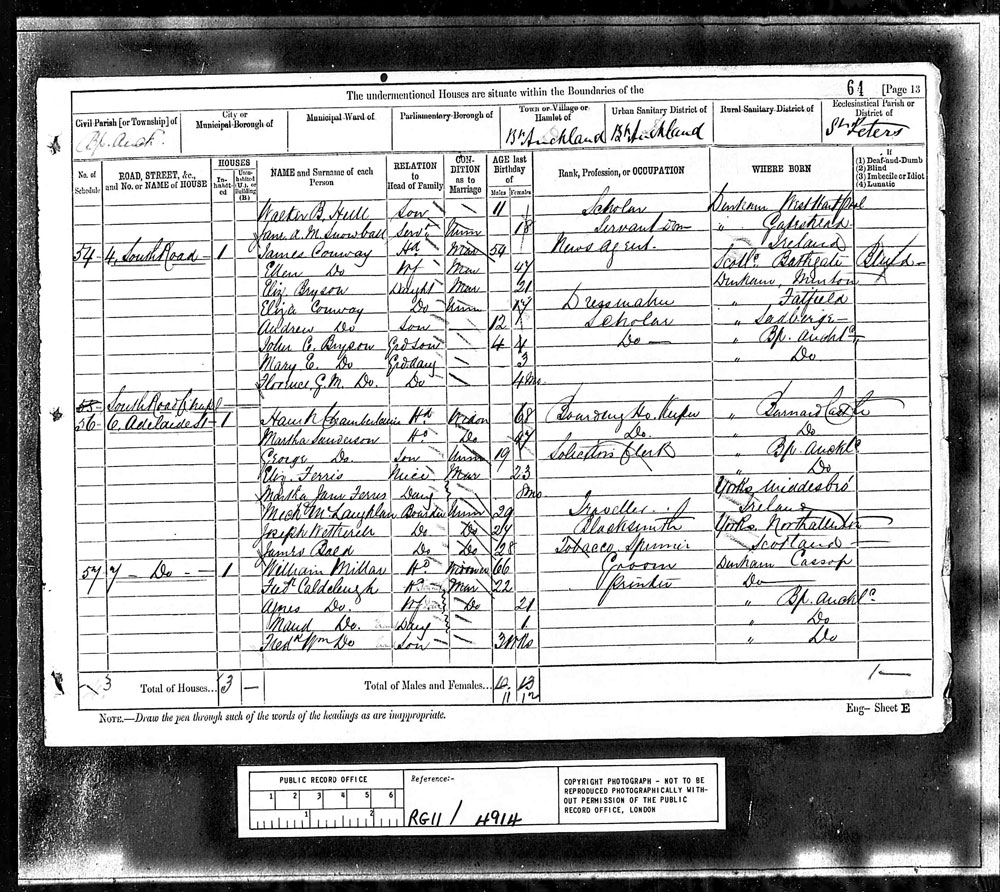 The undermentioned Houses are situate within Boundaries of the 64 [Page 13
Civil Parish [or Township] of
City or Municipal Borough of
Municipal Ward of
Parliamentary Borough of
Town or Village or Hamlet of
Urban Sanitary District of
Rural Sanitary District of
Ecclesiastical Parish or District of
Bp. Auck. Bp. Auckland Bp. Auckland St. Peters
No. of Schedule
ROAD, STREET, &c., and No. or NAME of HOUSE
HOUSES
Inhabited
Uninhabited (U.), or Building (B.)
NAME and Surname of each Person
RELATION to Head of Family
CONDITION as to Marriage
AGE last Birthday of
Males Females
Rank, Profession, or OCCUPATION
WHERE BORN
If
(1) Deaf-and-Dumb
(2) Blind
(3) Imbecile or Idiot
(4) Lunatic
Walter B. Hull Son 11 Scholar Durham West Hartpool
Jane A. M. Snowball Servt Unm 18 Servant Dom " Gateshead
54 4, South Road 1 James Conway Hd Mar 59 News Agent Ireland
Ellen Do Wf Mar 47 Scotld Bathgate Blind
Eliz. Bryson Daught Mar 21 Durham,
Eliza Conway Do Unm Dressmaker " Fatfield
Andrew Do Son 12 Scholar " Sadberge
John C. Bryson Grdson 4 Do " Bp. Auckld
Mary E. Do Grddaug 3 " Do
Florence G. M. Do. Do 4 Mo
55 South Road Chapel
56 6. Adelaide St 1 Chamberlain Hd Widow 68 Boarding Ho. Keeper " Barnard Castle
Martha Sanderson Hd Do 47 Do. " Do
George Do. Son Unm 19 Solicitors Clerk " Bp. Auckld
Eliz. Ferris Niece Mar 23 " Do
Martha Jane Ferris Daug 8 Mo Yorks Middesbro
Mich McLaughlan Boarder Unm 29 Traveller Ireland
Joseph Do Do 24 Blacksmith Yorks. Northallerton
James Do Do 28 Tobacco Spinner Scotland
57 7 Do 1 William Millar Hd Widower 66 Groom Durham Cassop
Fredk Caldcleugh Hd Mar 22 Printer Do
Agnes Do. Wf Do 21 " Bp. Auckld
Maud Do. Daug 1 " Do
Fredk Wm Do Son 3 Wks " Do
3 Total of Houses... 3 — Total of Males and Females... 10 13 1
11 12
NOTE.—Draw the pen through such of the words of the headings as are inappropriate.
Eng– Sheet E
PUBLIC RECORD OFFICE
1 2 3 4 5 6
1 2
Reference:-
RG11 / 4914
COPYRIGHT PHOTOGRAPH - NOT TO BE
REPRODUCED PHOTOGRAPHICALLY WITH-
OUT PERMISSION OF THE PUBLIC
RECORD OFFICE, LONDON